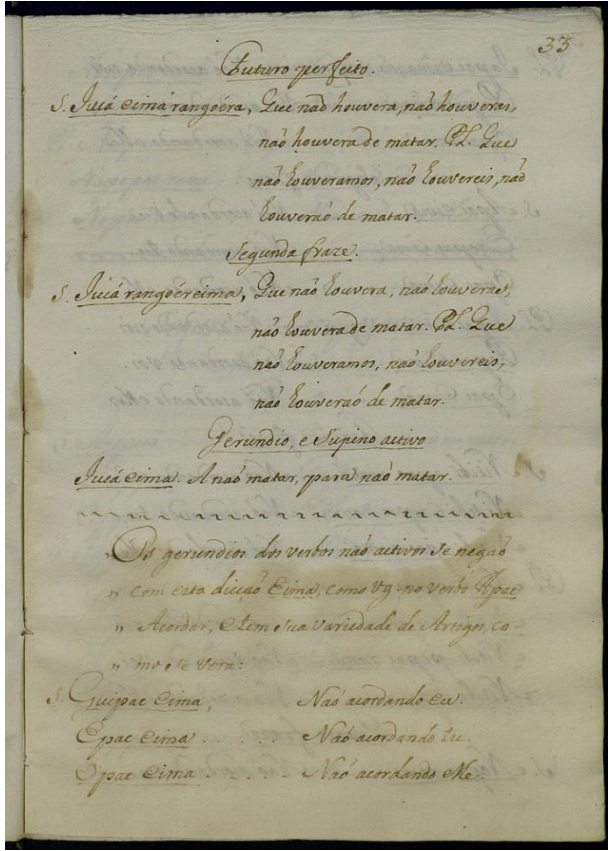 33
Futuro perfeito.
S. Jucá eima rangoéra, Que naõ houvera, naõ houveras,
naõ houvera de matar. Pl. Que
naõ houveramos, naõ houvereis, naõ
houveraõ de matar.
Segunda fraze.
S. Jucá rangoéreima, Que naõ houvera, naõ houveras,
naõ houvera de matar. Pl. Que
naõ houveramos, naõ houvereis,
naõ houveraõ de matar.
Gerundio, e Supino activo
Jucá eima. A naõ matar, para naõ matar.
Os gerundios dos verbos naõ activos se negaõ
" com esta dicçaõ Eima, como Vg. no verbo Apac
" Acordar, e tem sua variedade de Artigos, co
" mo se verá:
S. Guipac eima, Naõ acordando eu.
Epac eima . . . . . . Naõ acordando tu.
Opac eima . . . . . Naõ acordando elle.